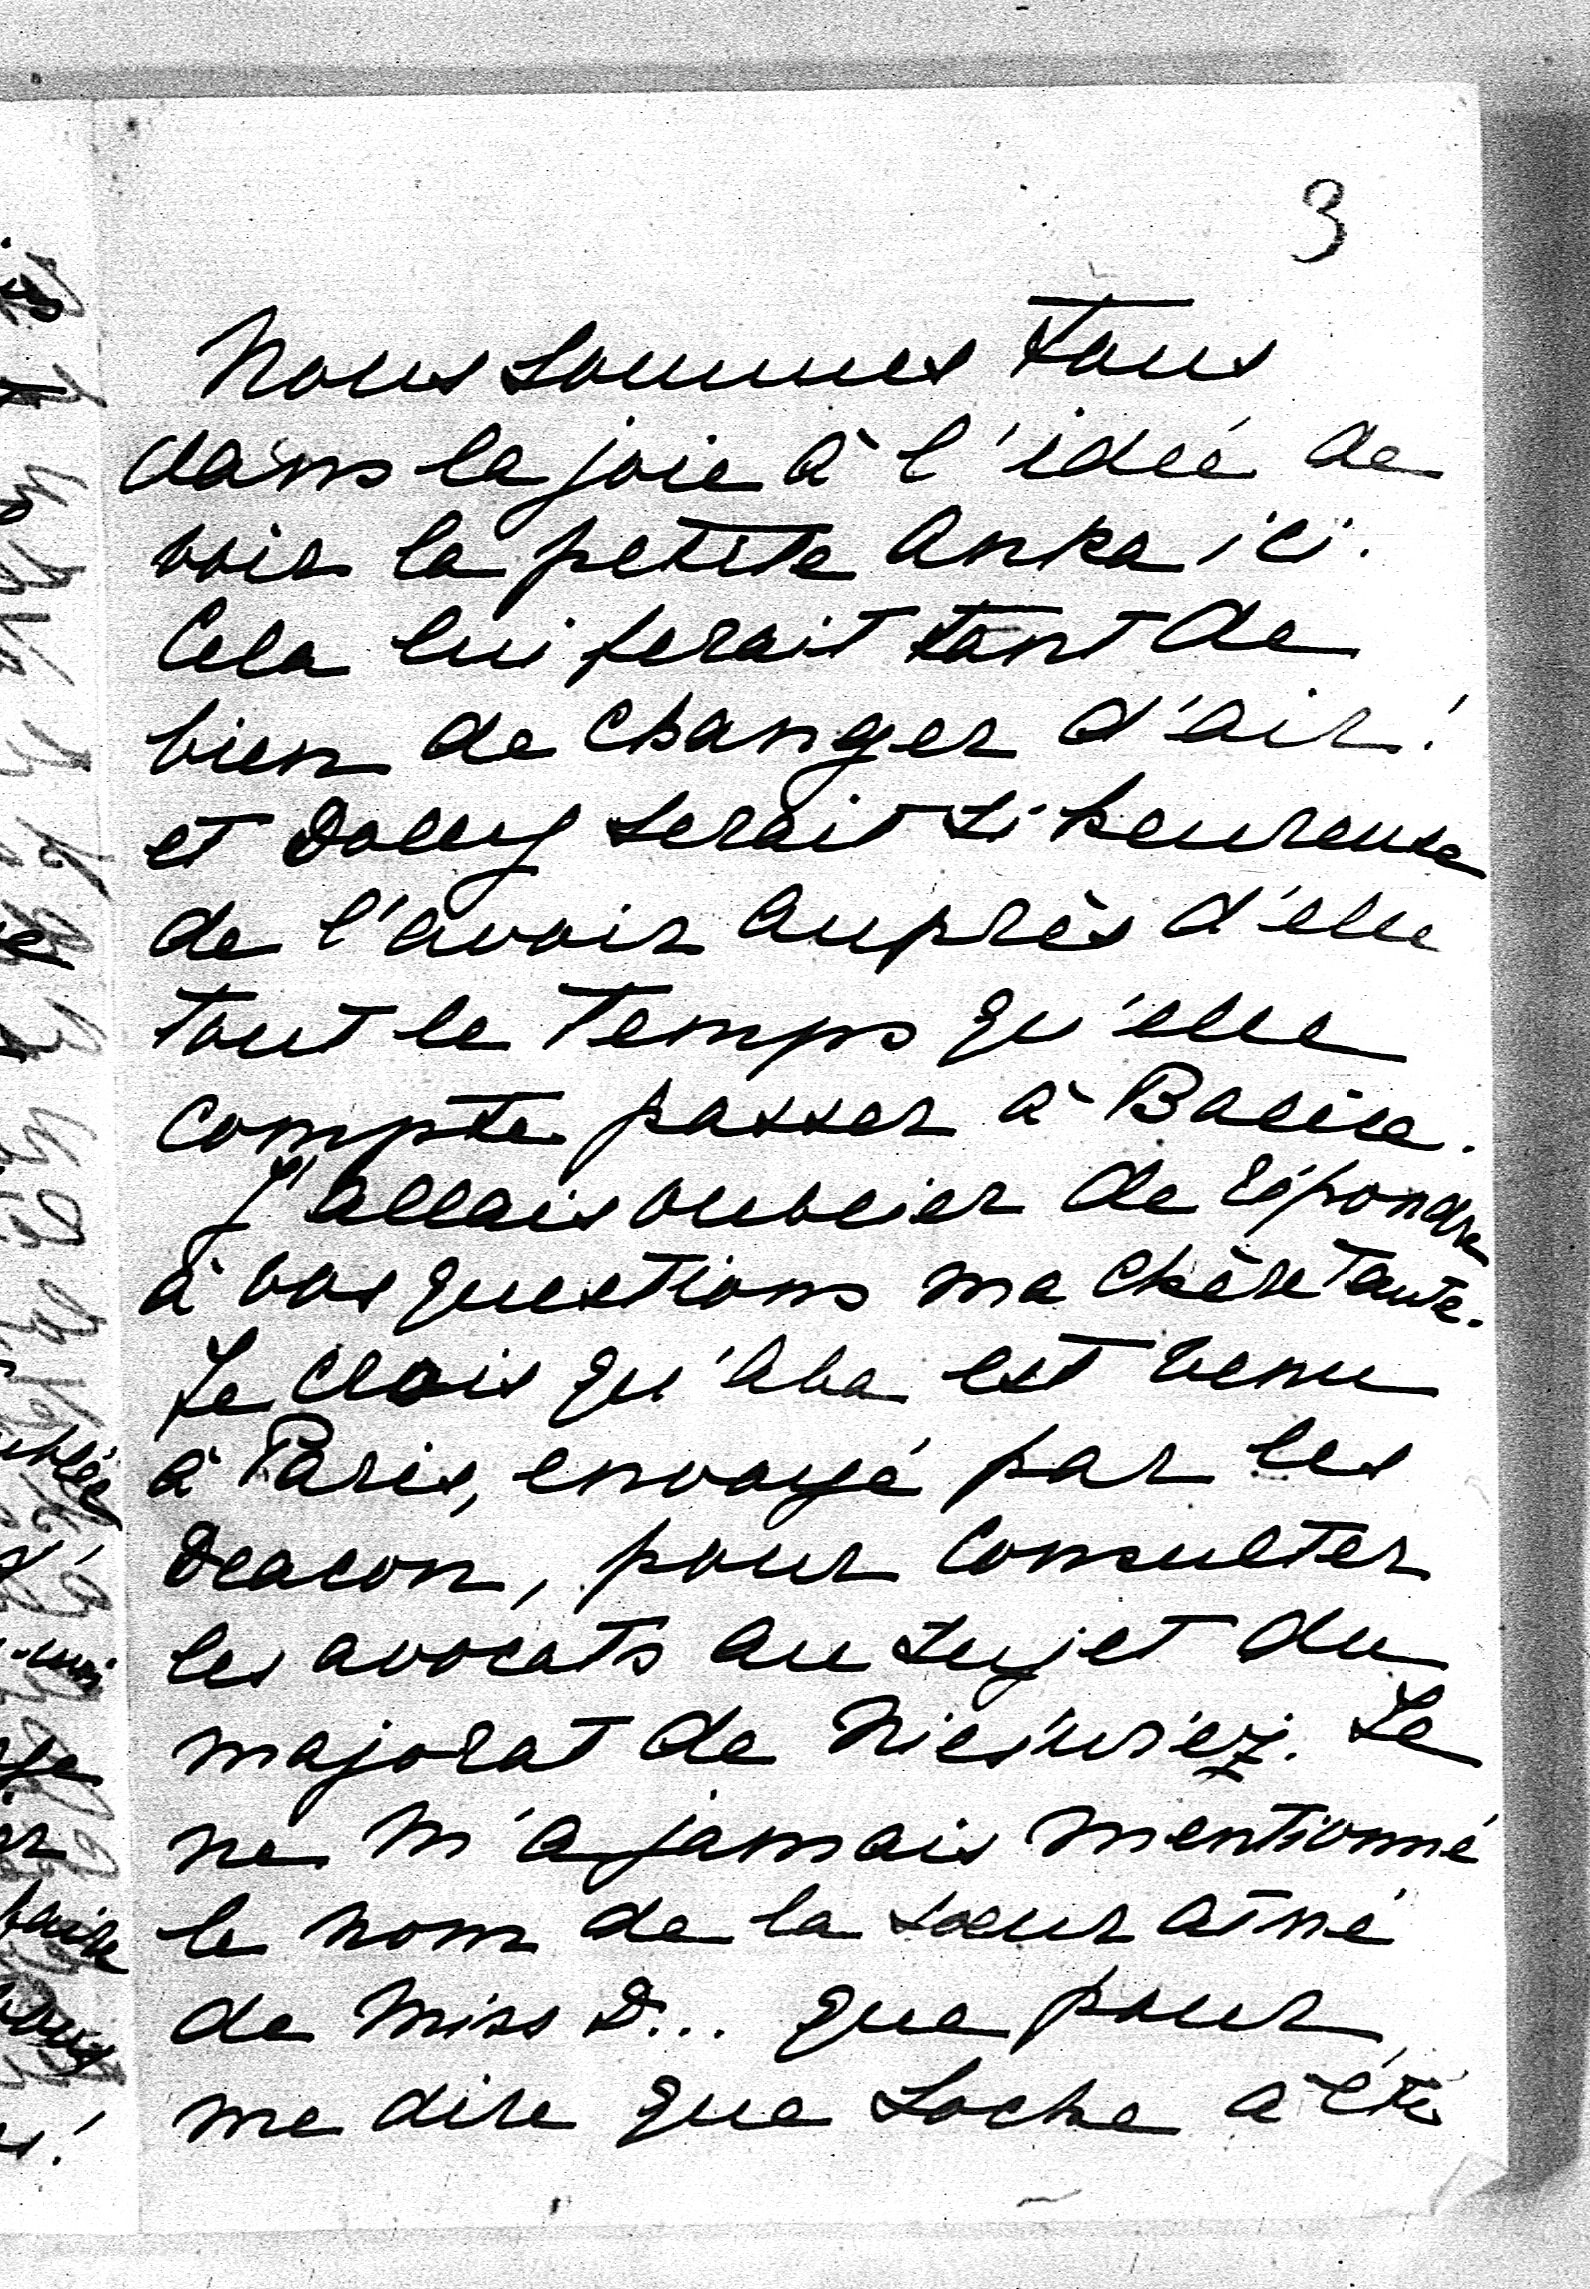 3
Nous sommes tous
dans la joie à l'idée de
voir la petite Anka ici.
Cela lui ferait tant de
bien de changer d'air!
et Dolly serait si heureuse
de l'avoir auprès d'elle
tout le temps qu'elle
compte passer à Balice.
J'allais oublier de répondre
à vos questions ma chère tante.
Je crois qu'Aba est venu
à Paris, envoyé par les
Deacon, pour consulter
les avocats au sujet du
majorat de Nieświez. Il
ne m'a jamais mentionné
le nom de la sœur aîné
de Miss D... que pour
me dire que Loche a été